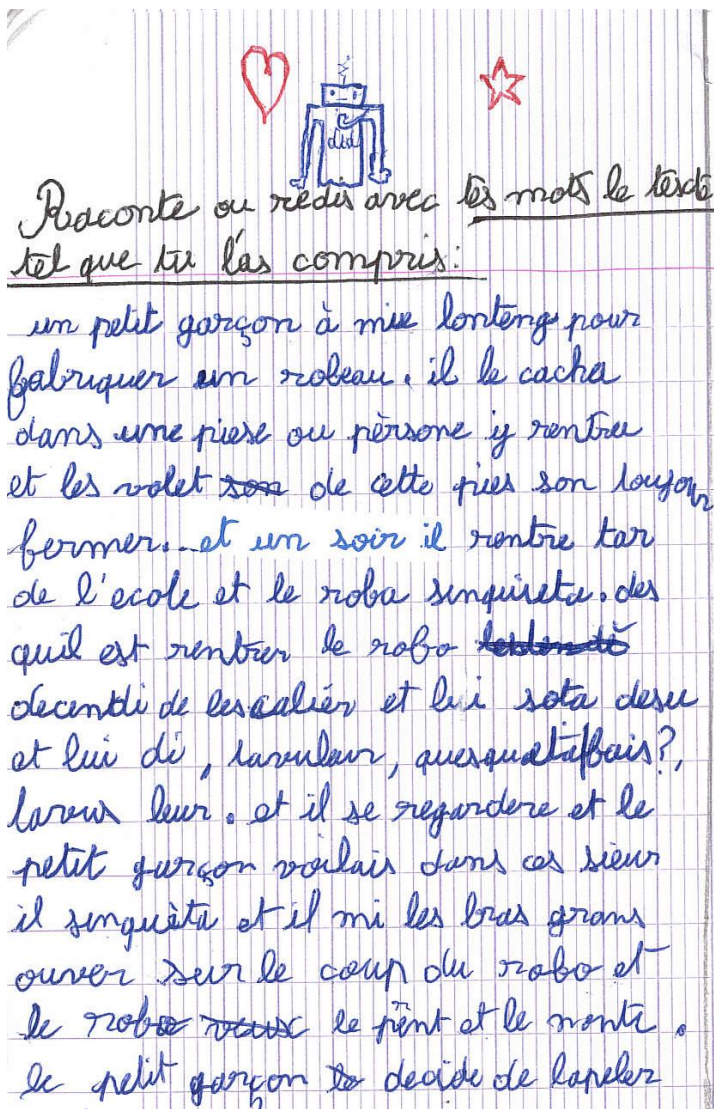 did
Raconte ou redis avec tes mots le texte
tel que tu l'as compris:
un petit garçon à mie lonteng pour
fabriquer un robeau. il le cacha
dans une piese ou pèrsone y rentre
et les volet son de cette pies son toujour
fermer. et un soir il rentre tar
de l'ecole et le roba sinquieta. des
quil est rentrer le robo
decendi de lescalièr et lui sota desu
et lui di, tavuleur, quesquetafais?,
tavus leur. et il se regardere et le
petit garçon voilais dans ces sieur
il sinquèta et il mi les bras grans
ouver sur le coup du robo et
le robo veux le pènt et le monte.
le petit garçon decide de lapeler